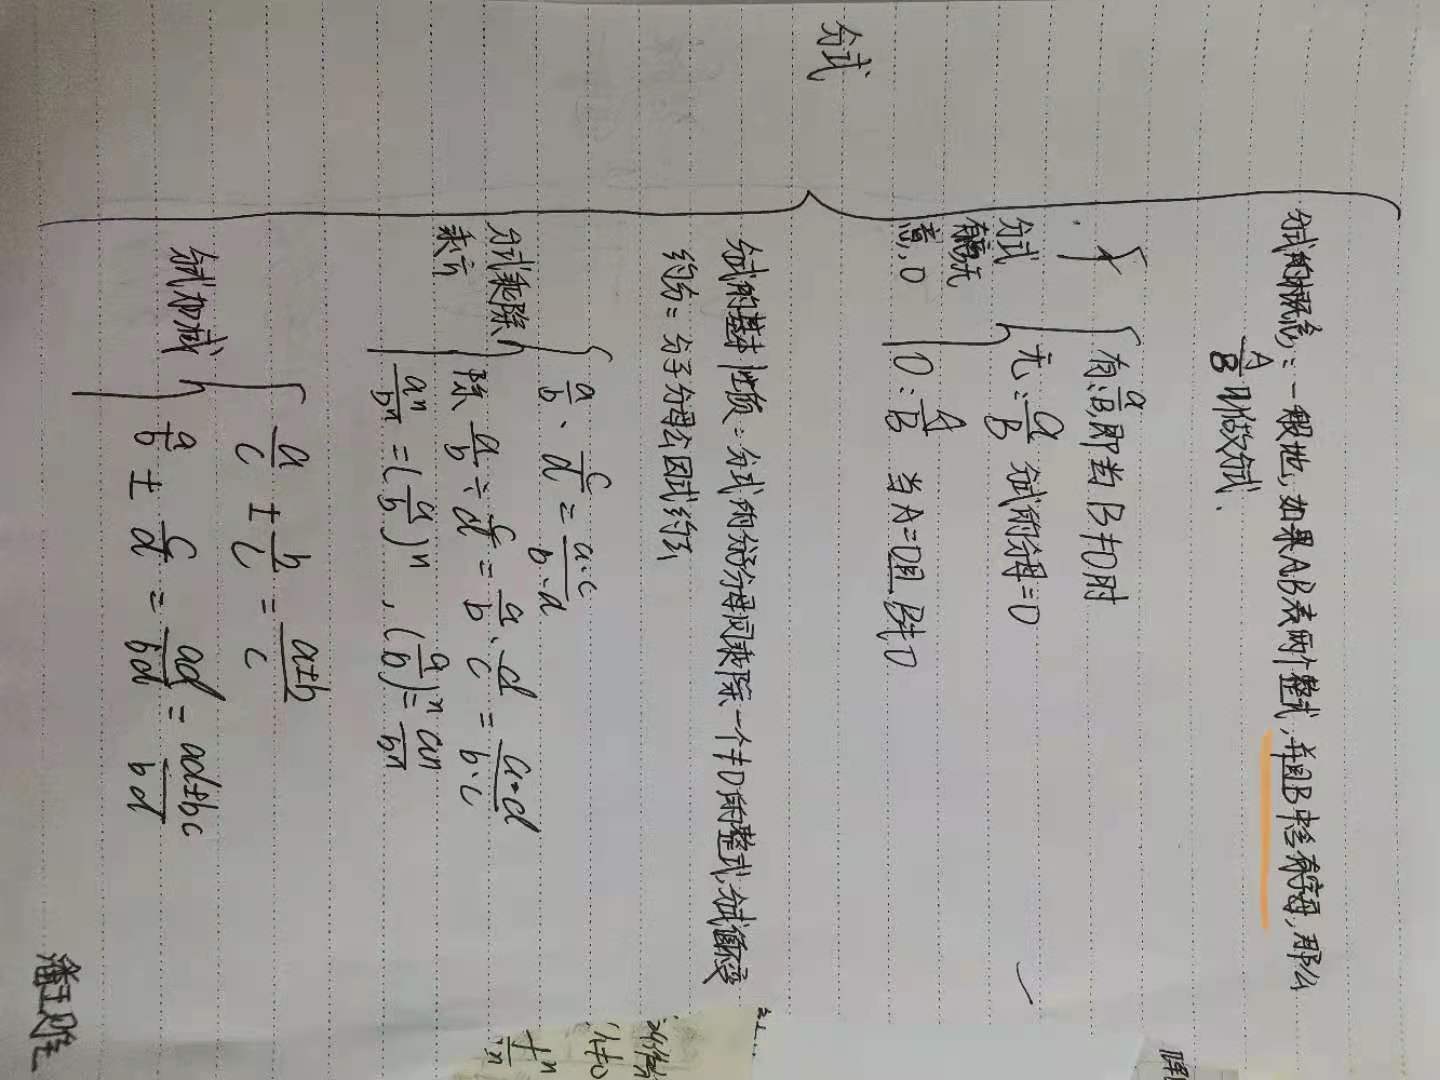 分式
分式的概念：一般地，如果AB表两个整式，并且B中含有字母，那么
A/B叫做分式.
分式
有意无
意，0
有：a/B，即当B≠0时
无：a/B 分式的分母=0
0：A/B 当A=0且B≠0
分式的基本性质：分式的分子分母同乘除一个≠0的整式，分式值不变
约分=分子分母公因式约去
分式乘除
乘方
a/b · c/d = a·c/b·d
除 a/b ÷ c/d = a/b · d/c = a·d/b·c
aⁿ/bⁿ = (a/b)ⁿ , (a/b)ⁿ = aⁿ/bⁿ
分式加减
a/c ± b/c = a±b/c
a/b ± c/d = ad/bd = ad±bc/bd